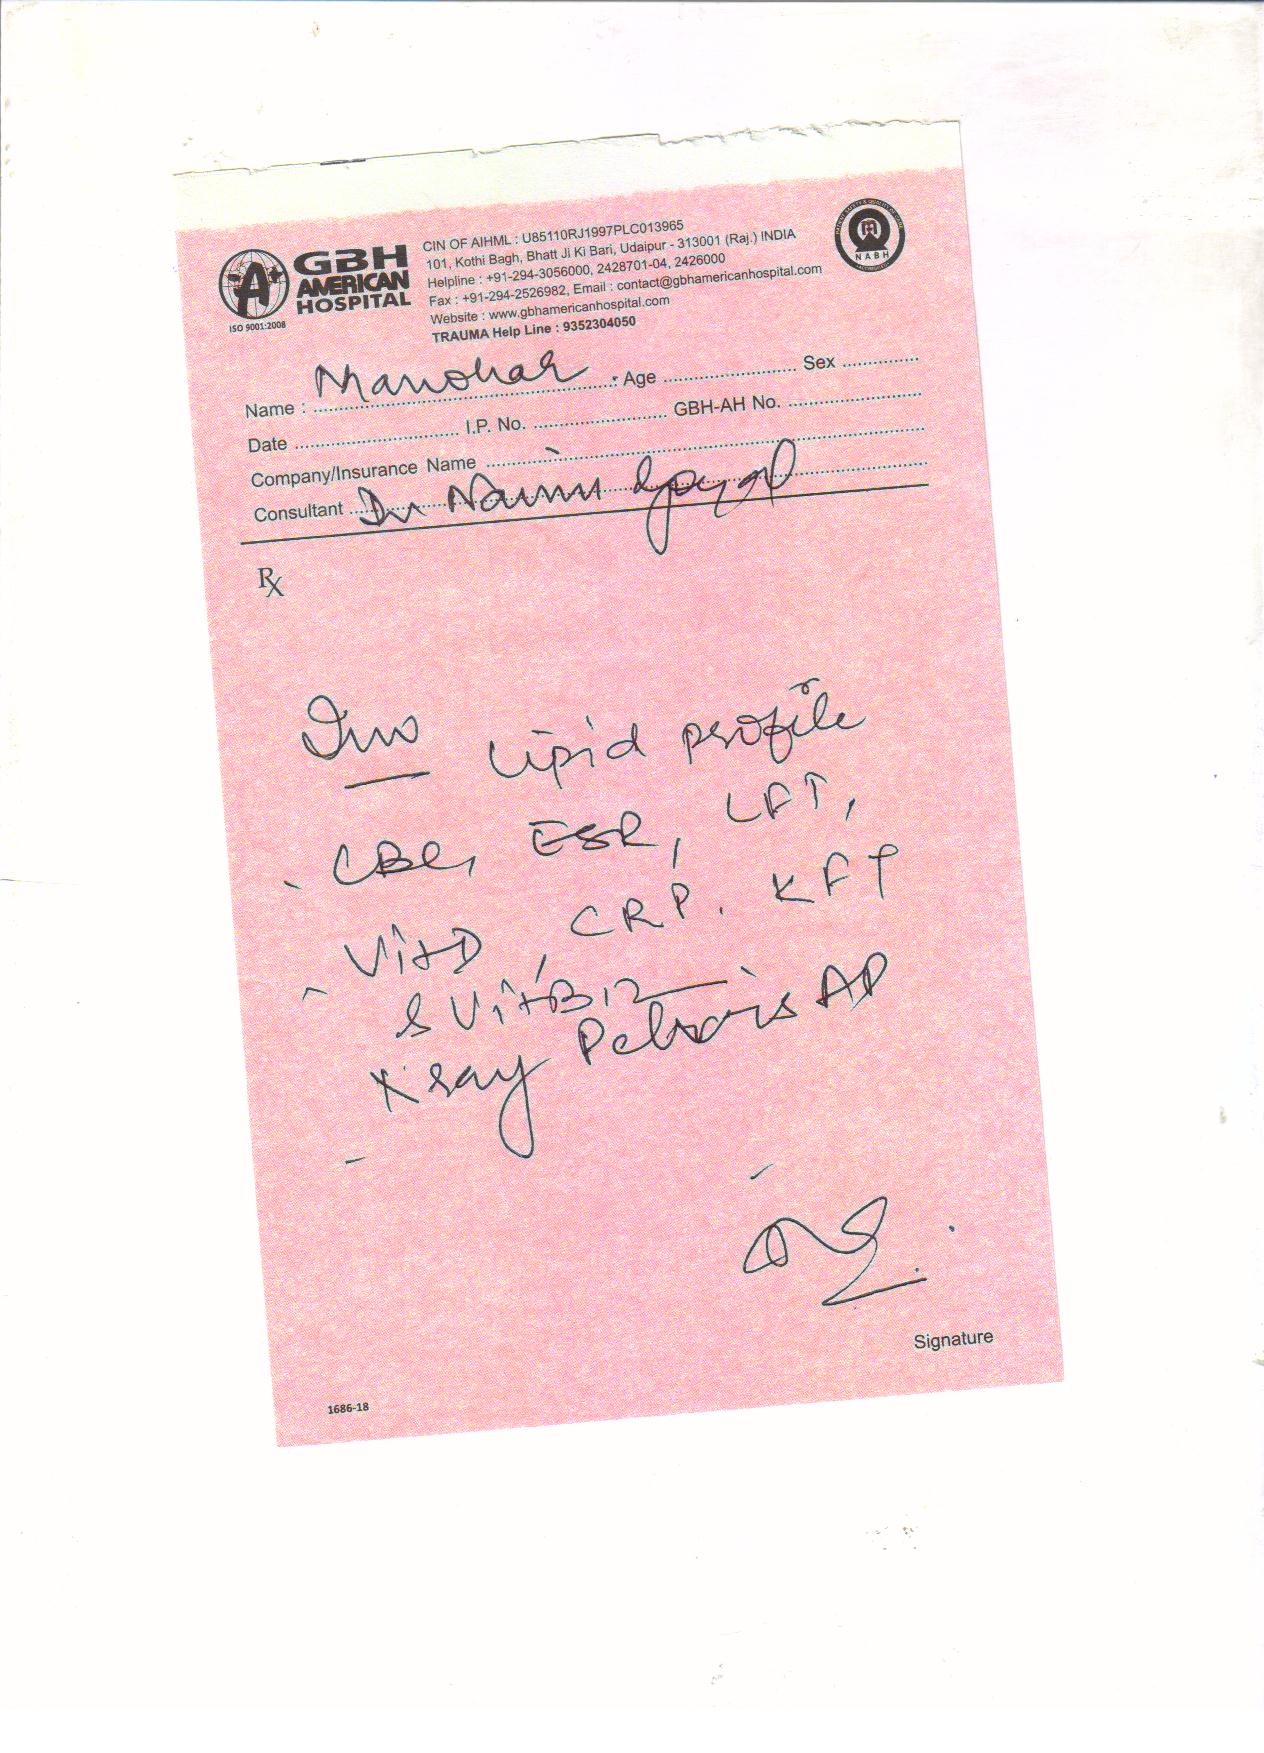 GBH
AMERICAN
HOSPITAL
ISO 9001:2008
CIN OF AIHML : U85110RJ1997PLC013965
101, Kothi Bagh, Bhatt Ji Ki Bari, Udaipur - 313001 (Raj.) INDIA
Helpline : +91-294-3056000, 2428701-04, 2426000
Fax : +91-294-2526982, Email : contact@gbhamericanhospital.com
Website : www.gbhamericanhospital.com
TRAUMA Help Line : 9352304050
NABH
Name : Manohar Age Sex
Date I.P. No. GBH-AH No.
Company/Insurance Name
Consultant Dr Goyal
Rx
Inv Lipid profile
CBC, ESR, LFT,
Vit D, CRP. KFT
& Vit B12
Xray Pelvis AP
Signature
1686-18